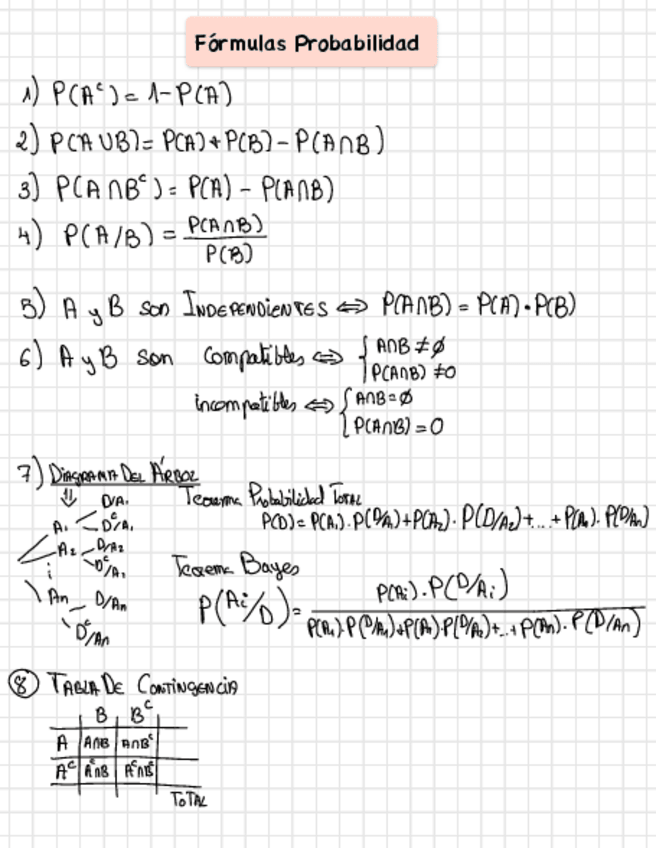 Fórmulas Probabilidad
1) P(Aᶜ) = 1 - P(A)
2) P(A ∪ B) = P(A) + P(B) - P(A ∩ B)
3) P(A ∩ Bᶜ) = P(A) - P(A ∩ B)
4) P(A/B) = P(A∩B) / P(B)
5) A y B son INDEPENDIENTES ⇔ P(A∩B) = P(A) · P(B)
6) A y B son compatibles ⇔ { A∩B ≠ ∅
P(A∩B) ≠ 0
incompatibles ⇔ { A∩B = ∅
P(A∩B) = 0
7) DIAGRAMA DEL ÁRBOL
⇓
A₁ D/A₁
Dᶜ/A₁
A₂ D/A₂
Dᶜ/A₂
⋮
An D/An
Dᶜ/An
Teorema Probabilidad TOTAL
P(D) = P(A₁) · P(D/A₁) + P(A₂) · P(D/A₂) + ... + P(An) · P(D/An)
Teorema Bayes
P(Ai/D) = P(Ai) · P(D/Ai) / P(A₁) · P(D/A₁) + P(A₂) · P(D/A₂) + ... + P(An) · P(D/An)
8 TABLA DE CONTINGENCIA
B Bᶜ
A A∩B A∩Bᶜ
Aᶜ Aᶜ∩B Aᶜ∩Bᶜ
TOTAL